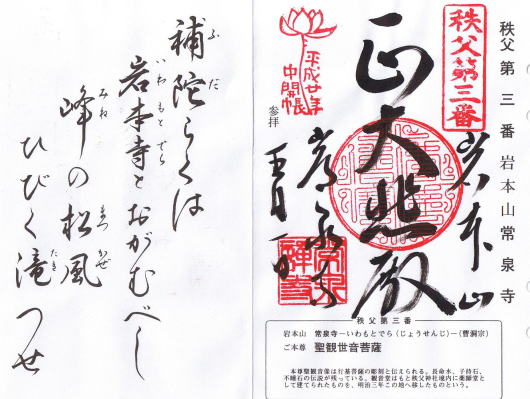 秩父第三番岩本山常泉寺
秩父第三番
岩本山
正大悲殿
平成廿年
中開帳
参拝
五月一日
秩父第三番
岩本山　常泉寺―いわもとでら（じょうせんじ）―（曹洞宗）
ご本尊　聖観世音菩薩
本尊聖観音像は行基菩薩の彫刻と伝えられる。長命水、子持石、
不睡石の伝説が残っている。観音堂はもと秩父神社境内に薬師堂と
して建てられたものを、明治三年この地へ移したものという。
補陀らくは
ふだ
岩本寺とおがむべし
いわもとでら
峰の松風
みね　まつかぜ
ひびく滝つせ
たき